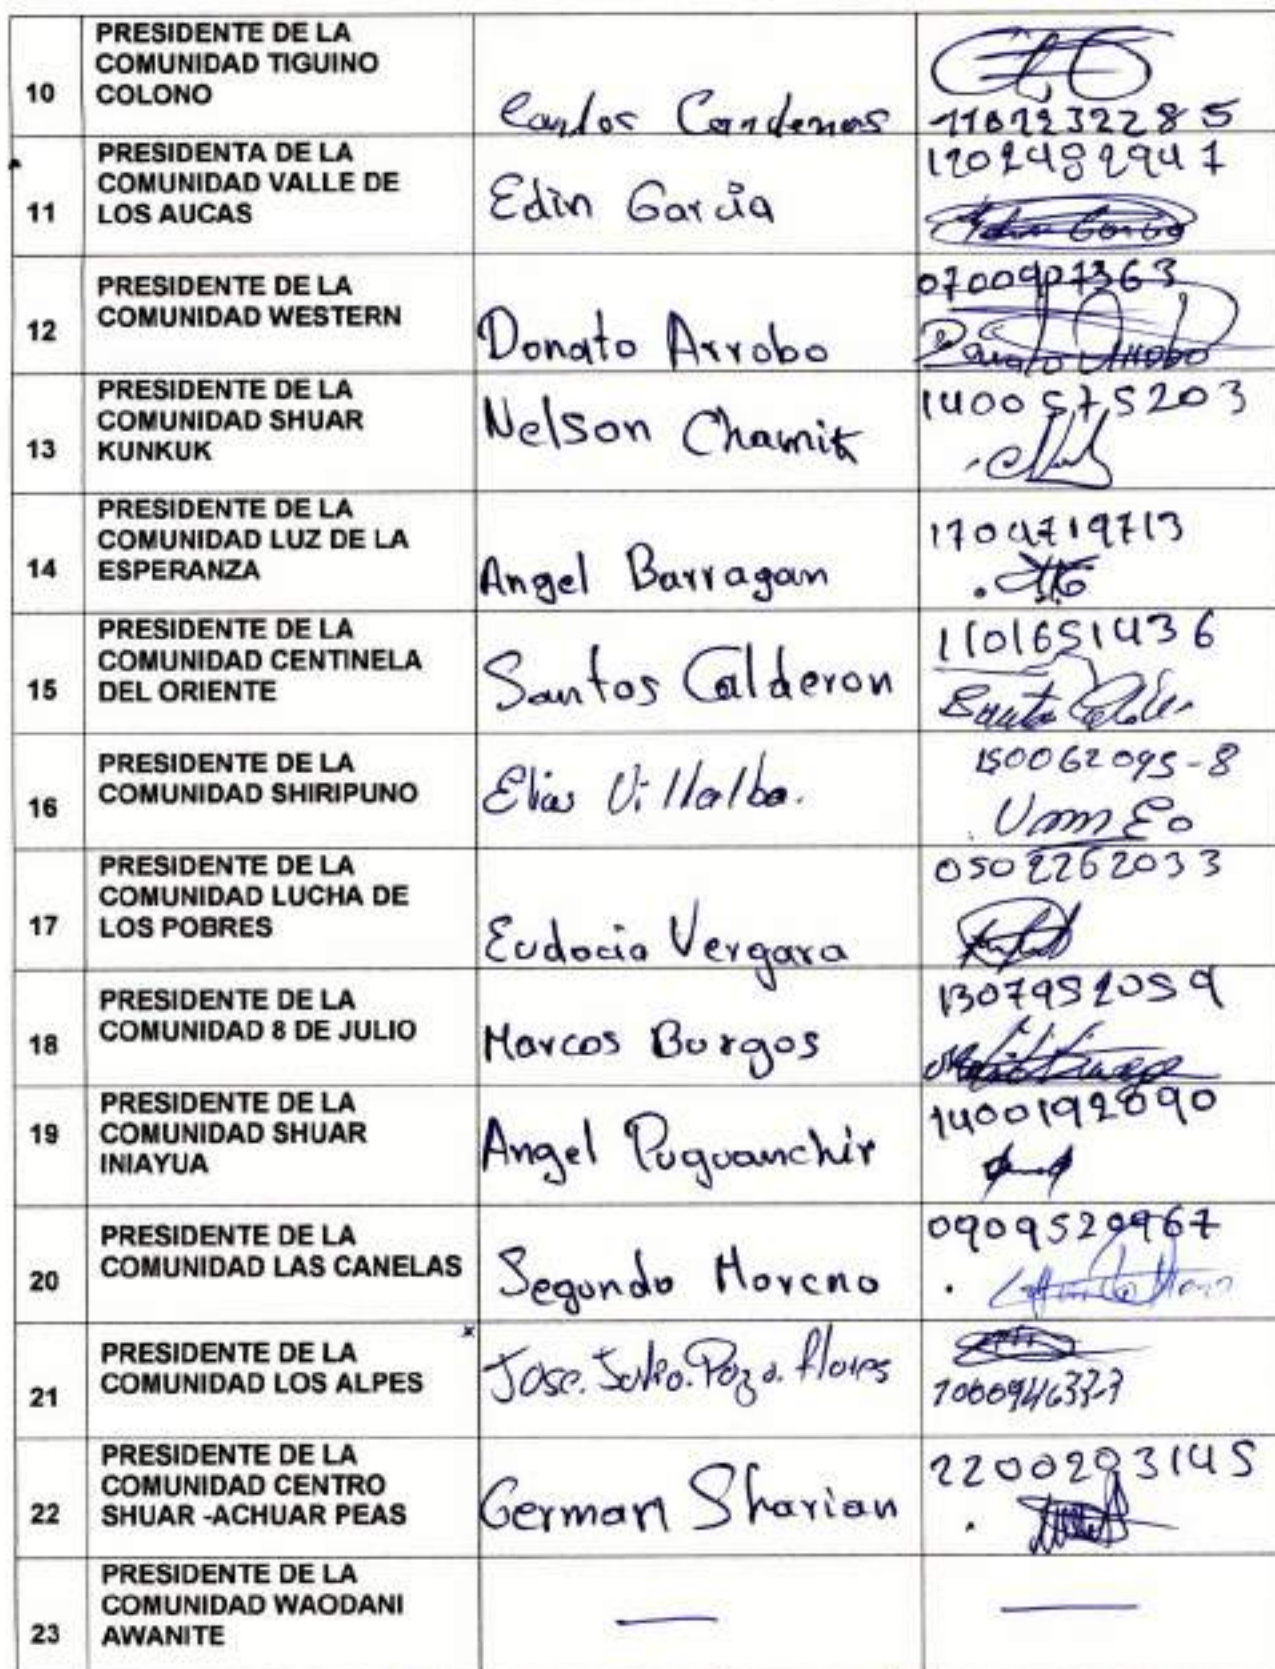 10
PRESIDENTE DE LA
COMUNIDAD TIGUINO
COLONO
Carlos Cardenas
11
PRESIDENTA DE LA
COMUNIDAD VALLE DE
LOS AUCAS
Edin Garcia
1202482947
12
PRESIDENTE DE LA
COMUNIDAD WESTERN
Donato Arrobo
0700907363
Donato Arrobo
13
PRESIDENTE DE LA
COMUNIDAD SHUAR
KUNKUK
Nelson Chamik
1400575203
14
PRESIDENTE DE LA
COMUNIDAD LUZ DE LA
ESPERANZA
Angel Barragan
1704719713
15
PRESIDENTE DE LA
COMUNIDAD CENTINELA
DEL ORIENTE
Santos Calderon
1101651436
16
PRESIDENTE DE LA
COMUNIDAD SHIRIPUNO
Elias Villalba.
150062095-8
17
PRESIDENTE DE LA
COMUNIDAD LUCHA DE
LOS POBRES
Eudocio Vergara
0502262033
18
PRESIDENTE DE LA
COMUNIDAD 8 DE JULIO
Marcos Burgos
1307952059
19
PRESIDENTE DE LA
COMUNIDAD SHUAR
INIAYUA
Angel Puguanchir
1400192890
20
PRESIDENTE DE LA
COMUNIDAD LAS CANELAS
Segundo Moreno
0909520967
21
PRESIDENTE DE LA
COMUNIDAD LOS ALPES
Jose. Julio. Pozo. flores
22
PRESIDENTE DE LA
COMUNIDAD CENTRO
SHUAR -ACHUAR PEAS
German Sharian
2200203145
23
PRESIDENTE DE LA
COMUNIDAD WAODANI
AWANITE